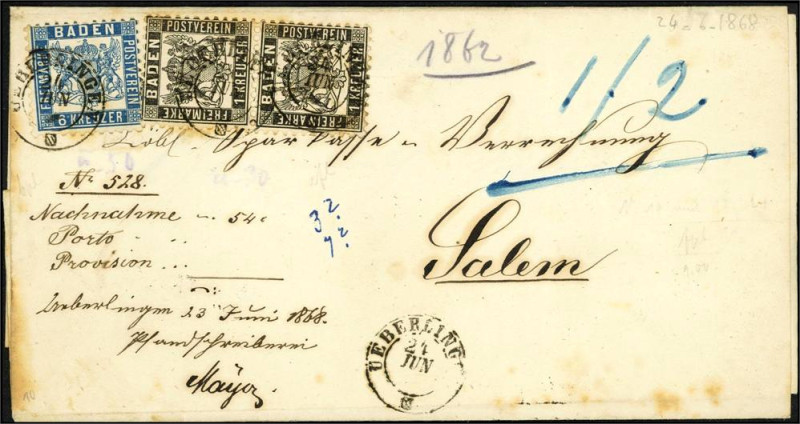 24.6.1868
BADEN
FREIMARKE
POSTVEREIN
6 KREUZER
BADEN
POSTVEREIN
FREIMARKE
1 KREUZER
BADEN
POSTVEREIN
FREIMARKE
1 KREUZER
UEBERLINGEN
JUN
JUN
1862
1/2
Löbl. Sparkasse = Verrechnung
Salem
No 528.
Nachnahme 54
Porto
Provision
Ueberlingen 23 Juni 1868.
Pfandschreiberei
Mayer
3 2.
7 2.
UEBERLING
24
JUN